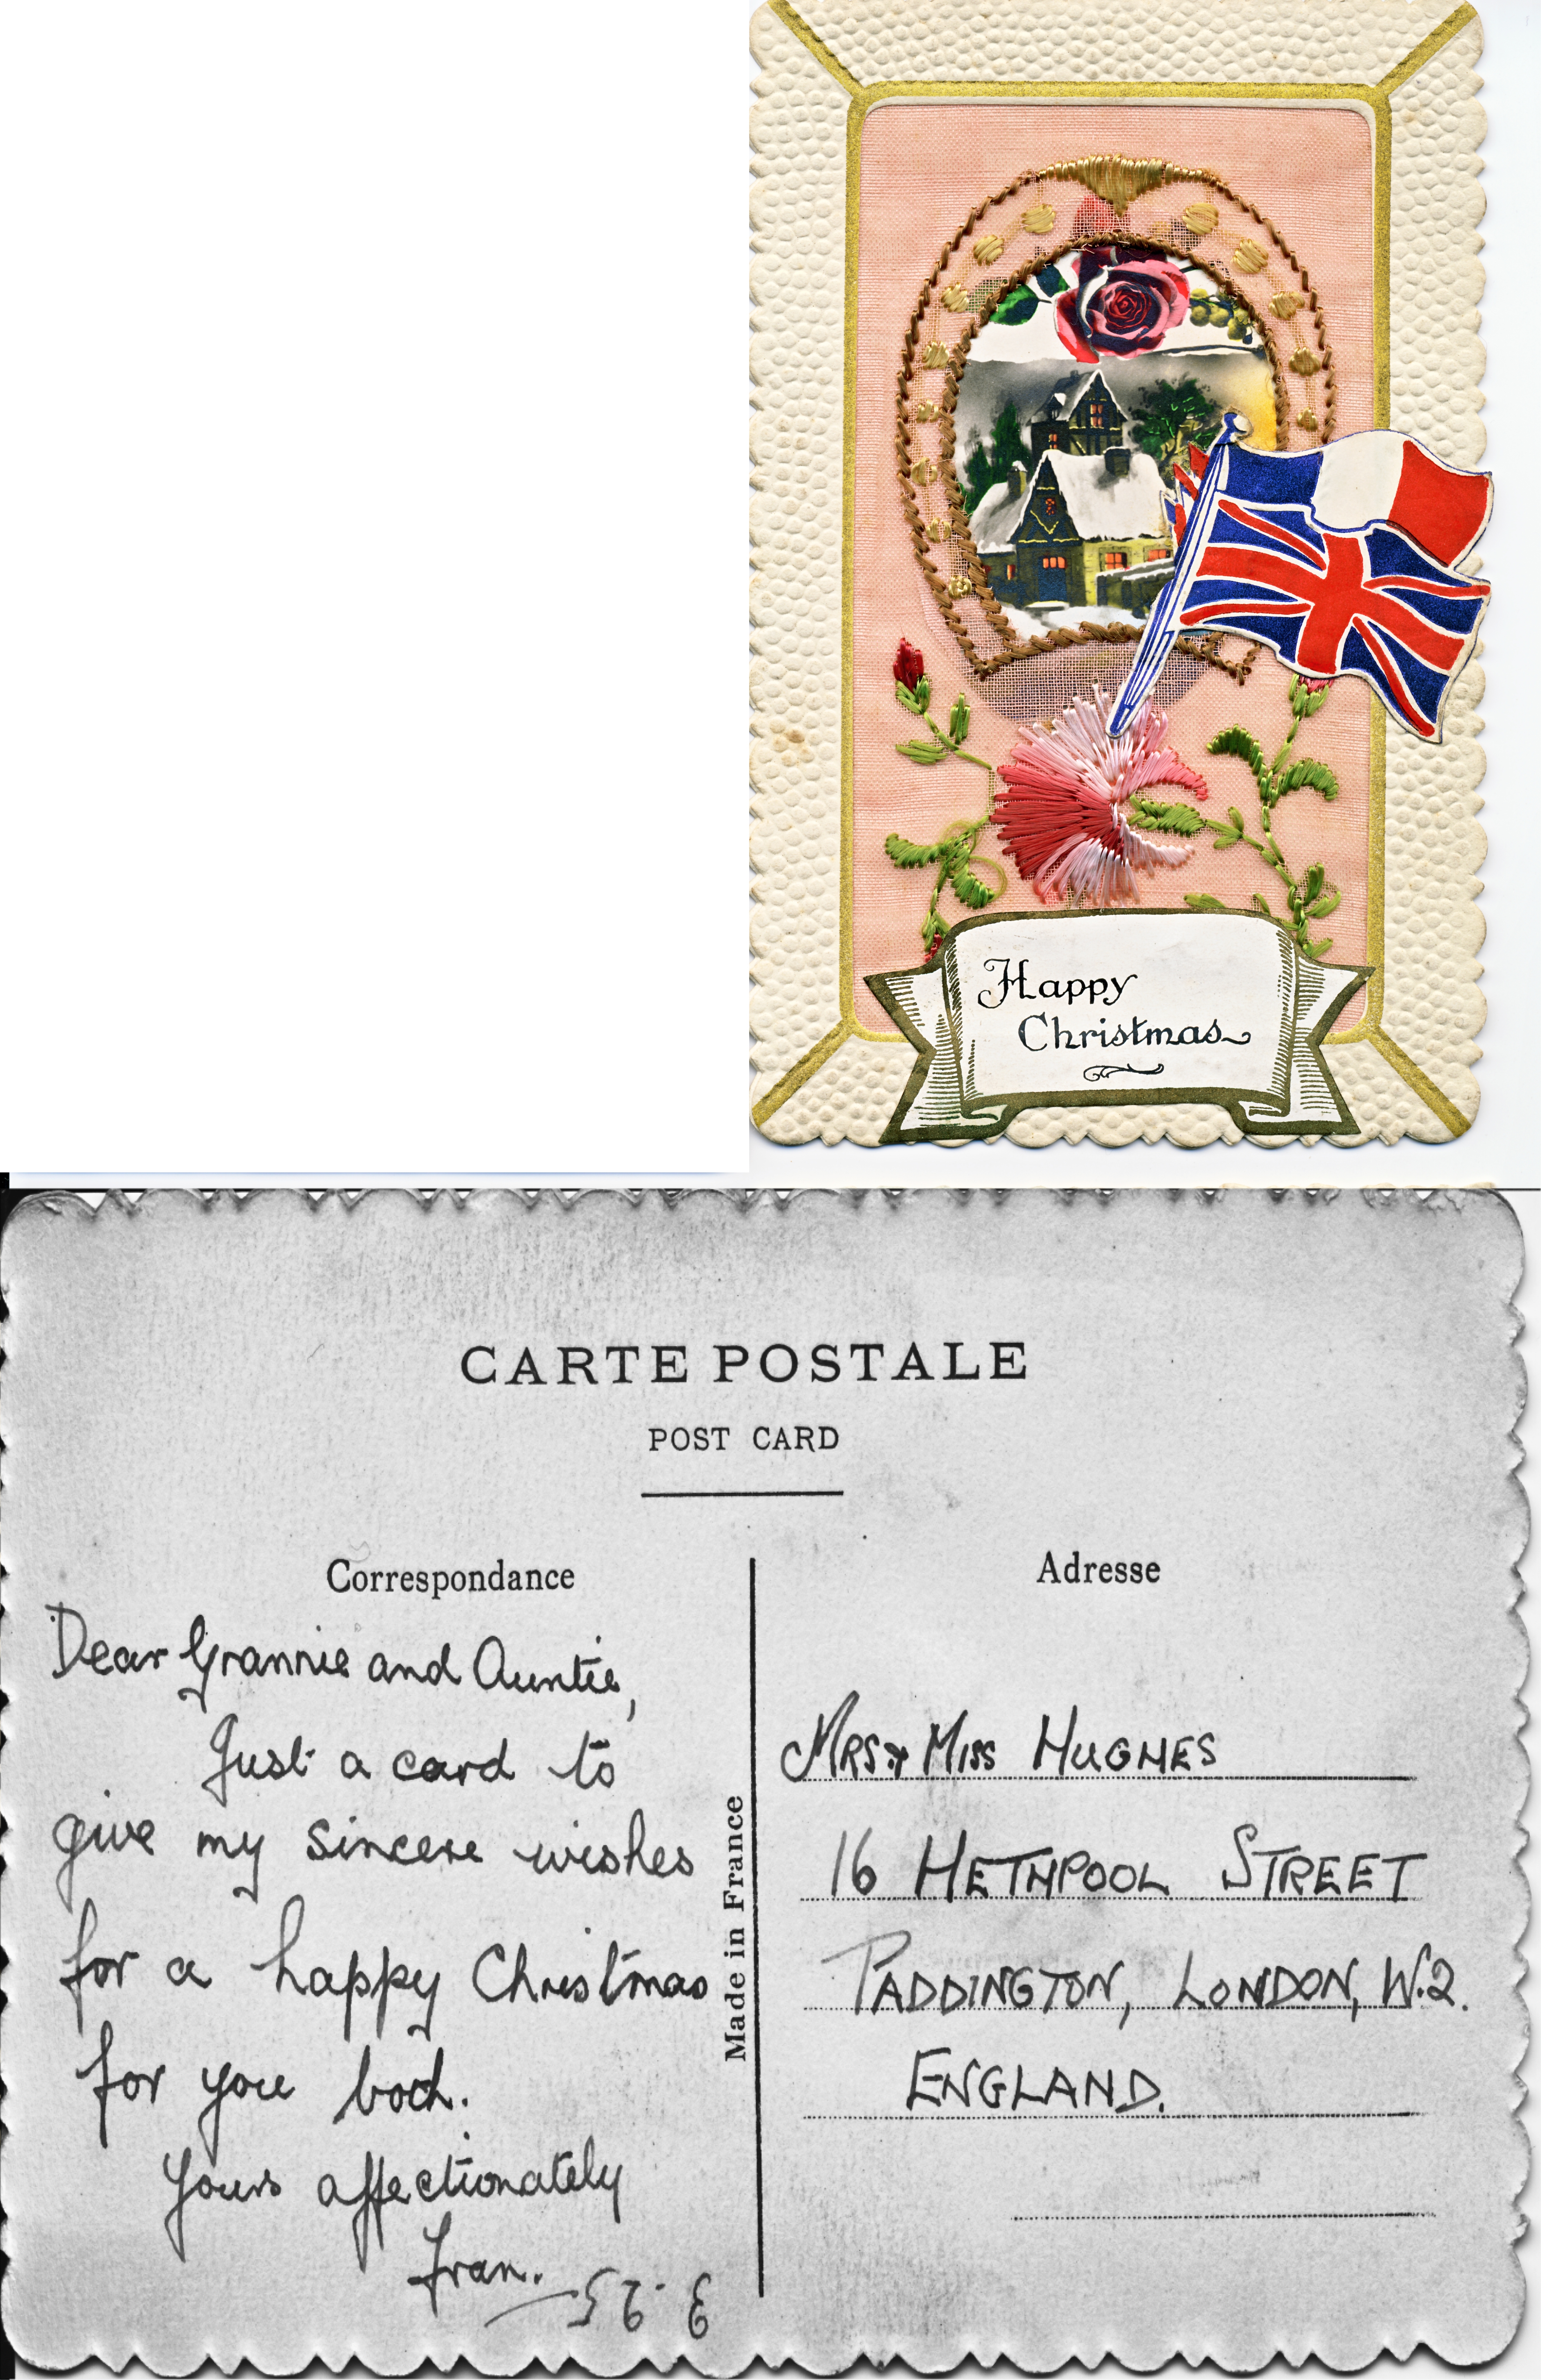 Happy
Christmas
CARTE POSTALE
POST CARD
Correspondance
Dear Grannie and Auntie,
Just a card to
give my sincere wishes
for a happy Christmas
for you both.
Yours affectionately
Fran.
Made in France
Adresse
MRS & MISS HUGHES
16 HETHPOOL STREET
PADDINGTON, LONDON, W.2.
ENGLAND.